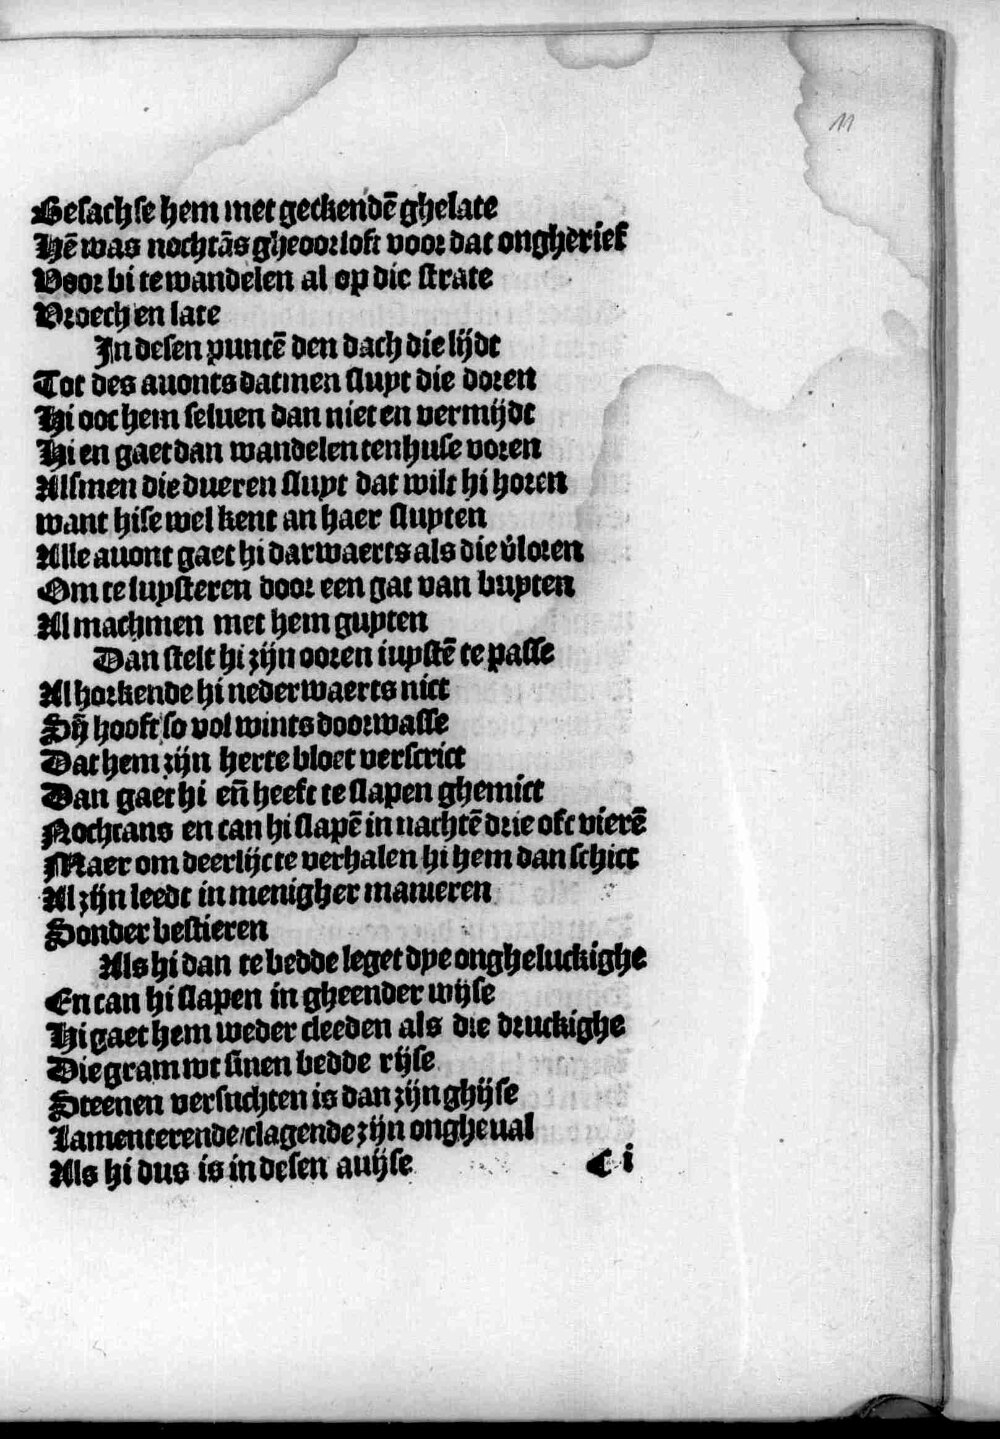 11
Besachse hem met geckendē ghelate
Hē was nochtās gheoorloft voor dat ongherief
Voor bi te wandelen al op die strate
Vroech en late
In desen puntē den dach die lijdt
Tot des auonts datmen sluyt die doren
Hi ooc hem seluen dan niet en vermijdt
Hi en gaet dan wandelen tenhuse voren
Alsmen die dueren sluyt dat wilt hi horen
want hise wel kent an haer sluyten
Alle auont gaet hi darwaerts als die v̄loren
Om te luysteren door een gat van buyten
Al machmen met hem guyten
Dan stelt hi zijn ooren iuystē te passe
Al horkende hi nederwaerts nict
Sij̄ hooft so vol wints doorwasse
Dat hem zijn herte bloet verscrict
Dan gaet hi en̄ heeft te slapen ghemict
Nochtans en can hi slapē in nachtē drie oft vierē
Maer om deerlijc te verhalen hi hem dan schict
Al zijn leedt in menigher manieren
Sonder bestieren
Als hi dan te bedde leget dye ongheluckighe
En can hi slapen in gheender wijse
Hi gaet hem weder cleeden als die druckighe
Die gram wt sinen bedde rijse
Steenen versuchten is dan zijn ghijse
Lamenterende/clagende zijn ongheual
Als hi dus is in desen auijse
C i